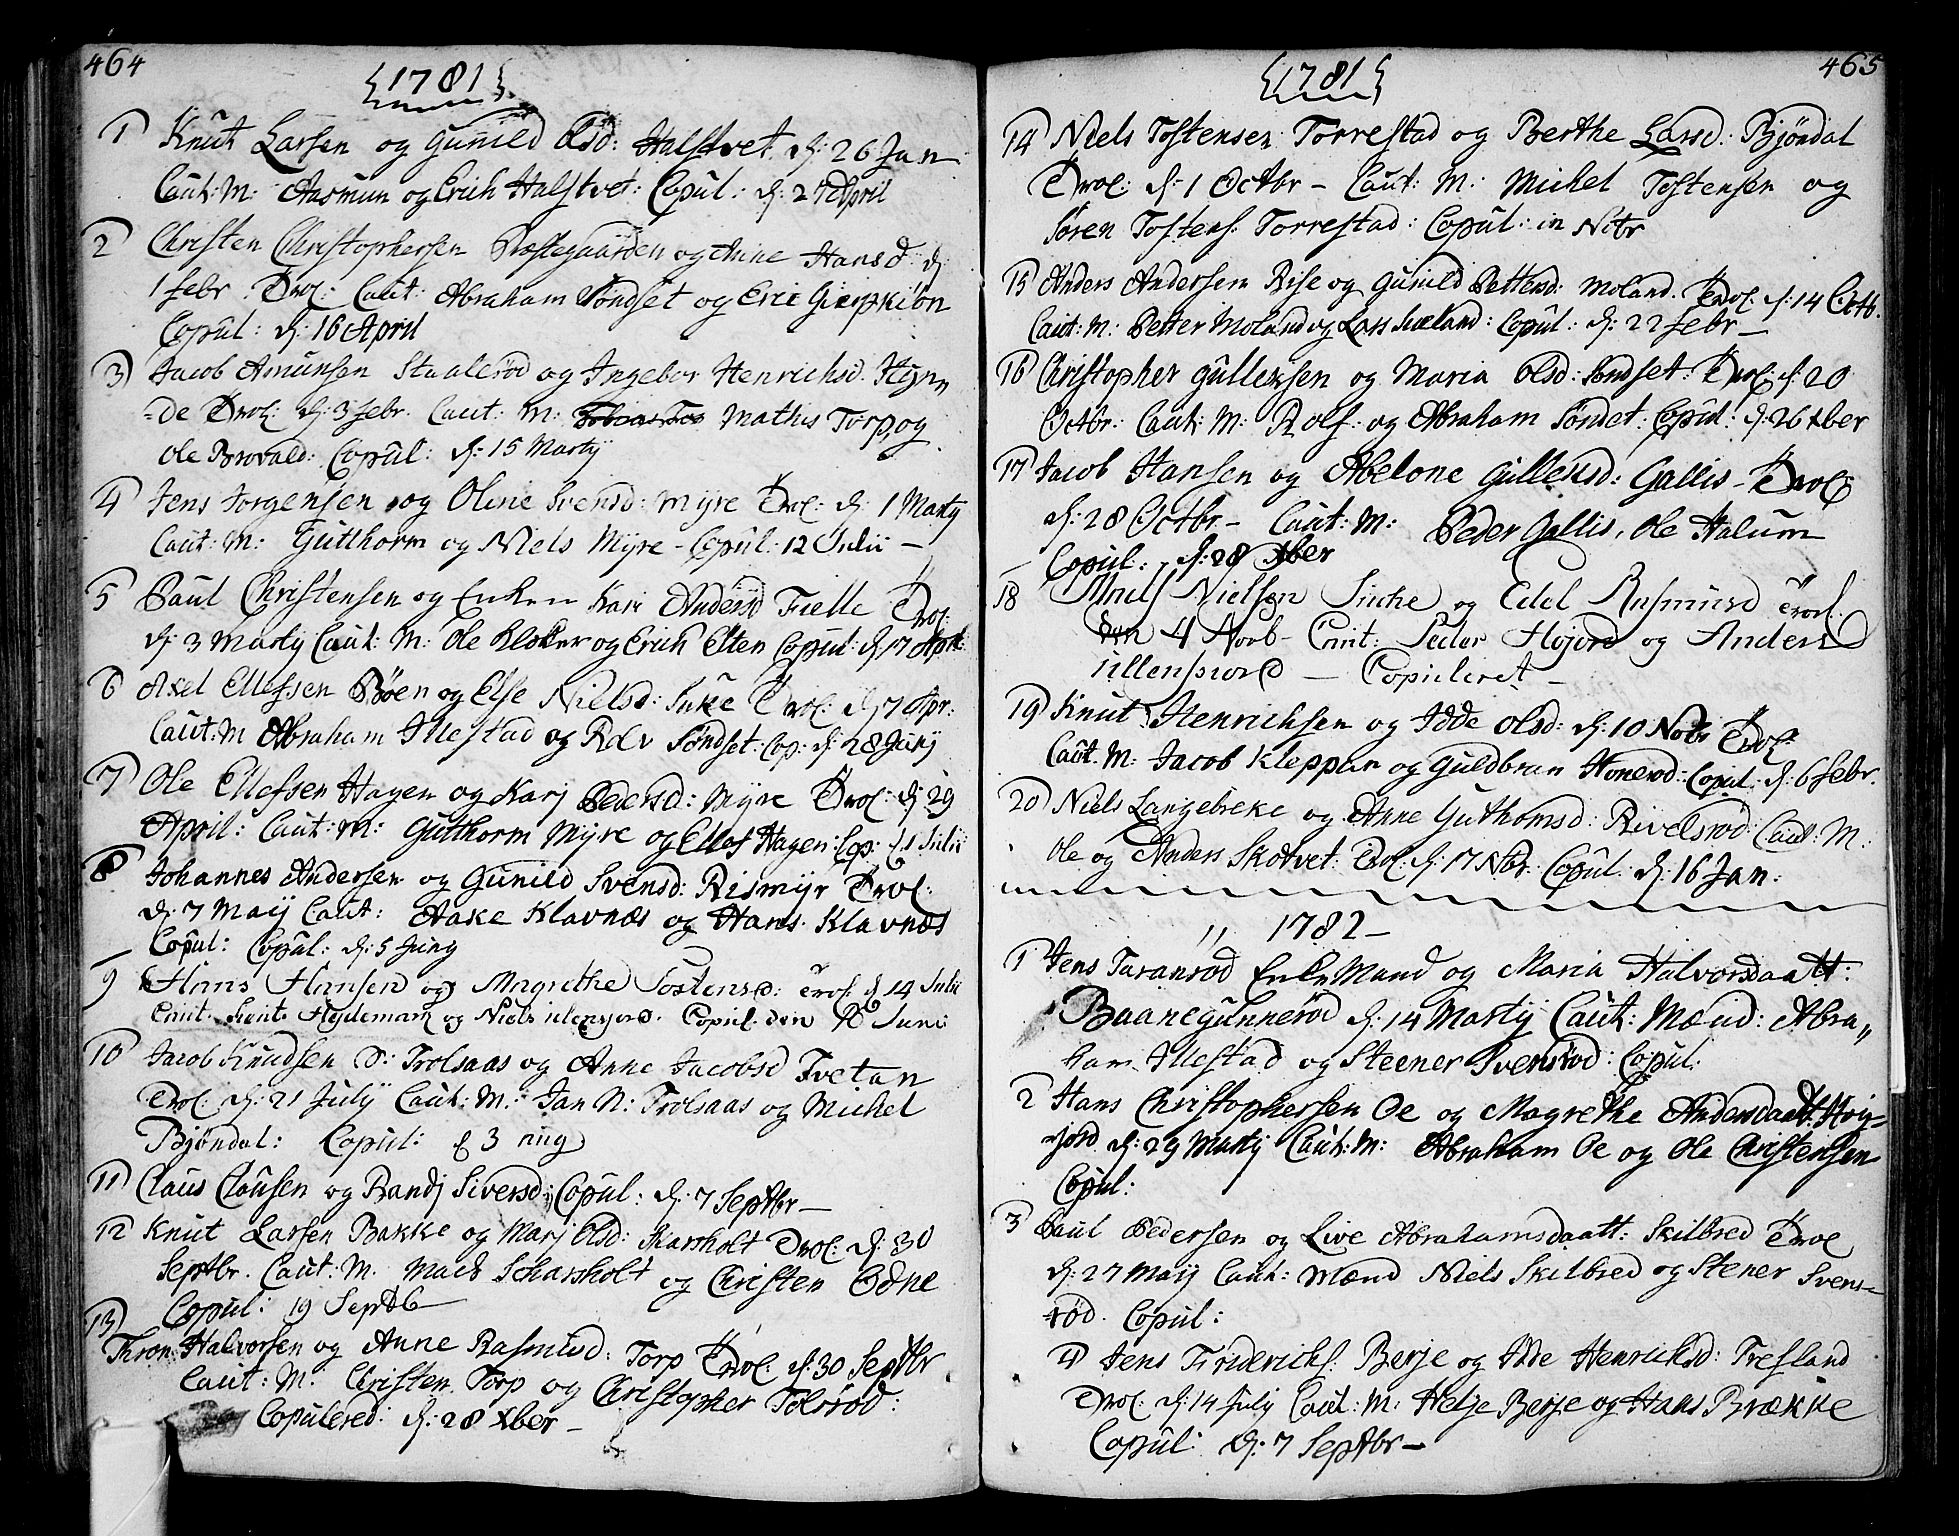 464
1781
1 Knut Larsen og Gunild Olsd: Halstvet d: 26 Jan
Caut: M: Aasmun og Erich Halstvet: Copul: d: 27 April
2 Christen Christophersen Præstegaarden og Anne Hansd: d:
1 febr. Trol: Caut: Abraham Søndset og Eric
Copul: d: 16 April
3 Jacob Amunsen Staalerød og Ingebor Henrichsd. Hyn,,
=de Trol: d: 3 febr. Caut: M: Mathis Torp, og
Ole Brovald: Copul: d: 15 Martij
4 Jens Jorgensen og Oline Svensd: Myre Trol: d: 1 Marty
Caut: M: Gutthorm og Niels Myre - Copul: 12 Julii -
5 Paul Christensen og Enken Kari Andersd Tielle Trol:
d: 3 Marty Caut: M: Ole Kloker og Erich Elten Copul: d: 17 Apr:
6 Axel Ellefsen Bøen og Else Nielsd: Inke Trol: d: 7 Apr:
Caut: M Abraham Illestad og Rolv Søndset: Cop: d: 28 Junj
7 Ole Ellefsen Hagen og Karj Pedersd: Myre Trol: d: 29
April: Caut: M: Gutthorm Myre og Ellef Hagen: Cop: d. 1 Julii
8 Johannes Andersen og Gunild Svensd: Rismyr Trol:
d: 7 Maij Caut: Aake Klavnæs og Hans Klavnæs
Copul: Copul: d: 5 Juny
9 Hans Hansen og Magrethe Tostensd: Trol: d 14 Julii
Caut: Heydeman og Niels Copul: den
10 Jacob Knudsen S: Trolsaas og Anne Jacobsd Tvetan
Trol: d: 21 July Caut: M: Jan N: Trolsaas og Michel
Bjøndal: Copul: d 3 aug
11 Claus Clausen og Randj Siversd: Copul: d: 7 Septbr -
12 Knut Larsen Bakke og Marj Olsd: Skarsholt Trol: d: 30
Septbr. Caut: M. Mads Scharsholt og Christen Odne
Copul: 19 Septb
13 Thron Halvorsen og Anne Rasmusd: Torp Trol: d: 30 Septbr
Caut: M: Christen Torp og Christopher Tolsrød:
Copulered: d: 28 Xber -
465
1781
14 Niels Tostensen Torrestad og Berthe Larsd: Bjøndal
Trol: d: 1 Octbr - Caut: M: Michel Tostensen og
Søren Tostens: Torrestad: Copul: in Nobr
15 Anders Andersen Rise og Gunild Pettersd: Moland. Trol: d: 14 Octb.
Caut: M: Petter Moland og Lars Copul: d: 22 febr -
16 Christopher Gullexsen og Maria Olsd: Søndset: Trol: d: 20
Octbr: Caut: M: Rolf: og Abraham Søndet: Copul: d: 26 Xber
17 Jacob Hansen og Abelone Gullexsd: Gallis - Trol:
d: 28 Octbr - Caut: M: Peder Gallis, Ole Halum
Copul: d: 28 Xber
18 Nielsen Sucke og Edel Rasmusd Trol:
den 4 Novb - Caut: Peder Højord og Anders
Copuleret -
19 Knut Henrichsen og Idde Olsd: d: 10 Nobr Trol:
Caut: M: Jacob Kleppan og Guldbran Honerød: Copul: d: 6 febr.
20 Niels Langebreke og Anne Guthomsd: Rivelsrød: Caut: M:
Ole og Anders Skotvet: Trol: d: 17 Nbr: Copul d: 16 Jan:
1782 -
1 Jens Taranrød Enke Mand og Maria Halvorsdaatt:
Baanegunnerød d: 14 Marty Caut: Mænd: Abra,,
ham Illestad og Steener Svensrød: Copul:
2 Hans Christophersen Oe og Magrethe Andersdaatt: Høy-
jord d: 29 Marty Caut: M: Abraham Oe og Ole Christensen
Copul:
3 Paul Pedersen og Live Abrahamsdaatt: Skilbred Trol
d: 27 Maij Caut: Mænd Niels Skilbred og Stener Svens=
rød. Copul:
4 Jens Friderichs: Berje og Idde Henrichsd: Fresland
Trol: d: 14 July Caut: M: Helje Berje og Hans Brække
Copul: d: 7 Septbr -